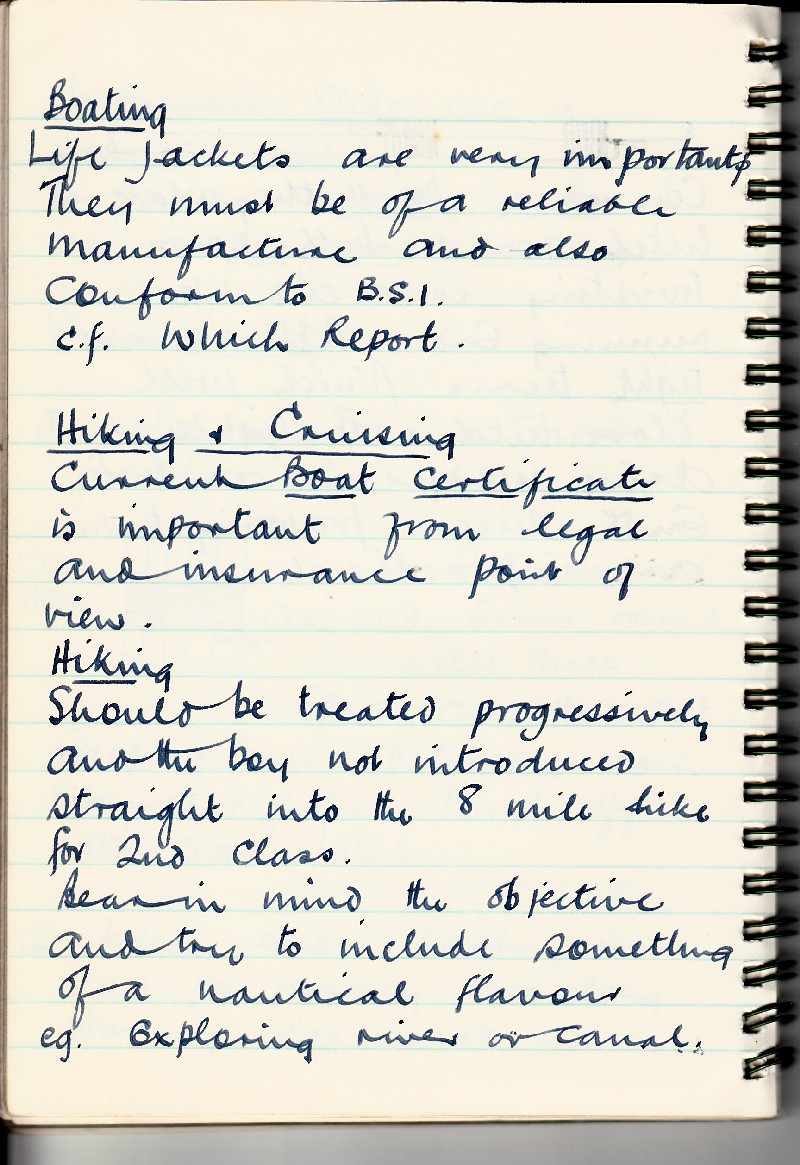 Boating
Life Jackets are very important
They must be of a reliable
manufacture and also
Conform to B.S.I.
c.f. Which Report.
Hiking & Cruising
Current Boat Certificate
is important from legal
and insurance point of
view.
Hiking
Should be treated progressively
and the boy not introduced
straight into the 8 mile hike
for 2nd Class.
Bear in mind the objective
and try to include something
of a nautical flavour
eg. Exploring river or canal.